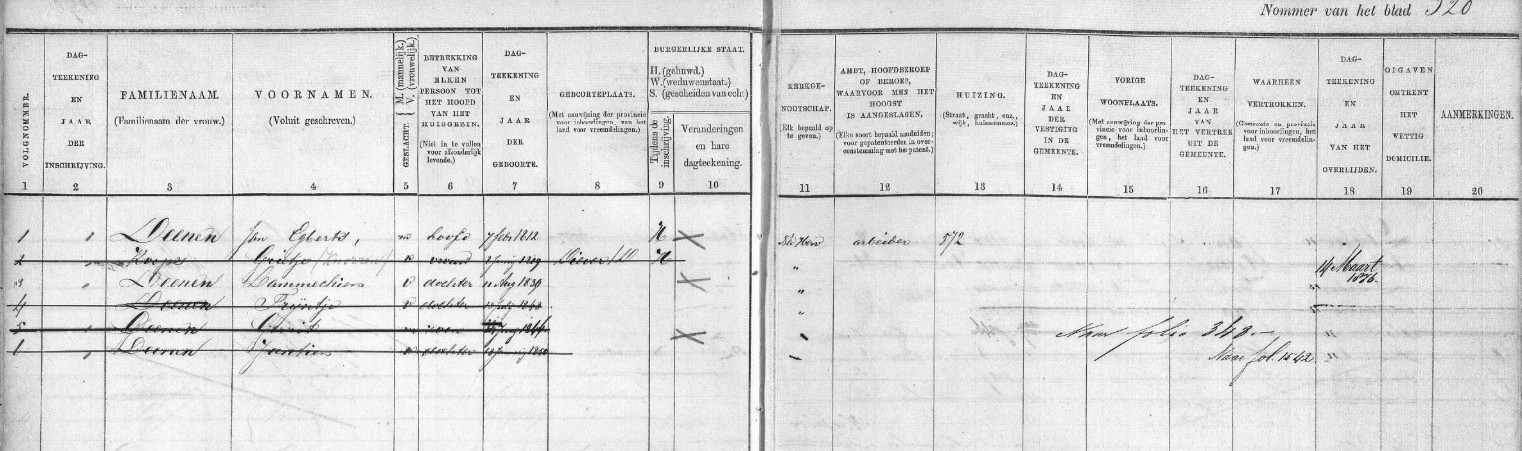 Nommer van het blad 320
VOLGNOMMER.
1
DAG-
TEEKENING
EN
JAAR
DER
INSCHRIJVING.
2
FAMILIENAAM.
(Familienaam der vrouw.)
3
VOORNAMEN.
(Voluit geschreven.)
4
GESLACHT. { M. (mannelijk.) V. (vrouwelijk.)
5
BETREKKING
VAN
ELKEN
PERSOON TOT
HET HOOFD
VAN HET
HUISGEZIN.
(Niet in te vullen
voor afzonderlijk
levende.)
6
DAG-
TEEKENING
EN
JAAR
DER
GEBOORTE.
7
GEBOORTEPLAATS.
(Met aanwijzing der provincie
voor inboorlingen, van het
land voor vreemdelingen.)
8
BURGERLIJKE STAAT.
H. (gehuwd.)
W. (weduwenstaat.)
S. (gescheiden van echt.)
Tijdens de
inschrijving.
9
Veranderingen
en hare
dagteekening.
10
KERKGE-
NOOTSCHAP.
(Elk bepaald op
te geven.)
11
AMBT, HOOFDBEROEP
OF BEROEP,
WAARVOOR MEN HET
HOOGST
IS AANGESLAGEN.
(Elke soort bepaald aanduiden;
voor gepatenteerden in over-
eenstemming met het patent.)
12
HUIZING.
(Straat, gracht, enz.,
wijk, huisnommer.)
13
DAG-
TEEKENING
EN
JAAR
DER
VESTIGING
IN DE
GEMEENTE.
14
VORIGE
WOONPLAATS.
(Met aanwijzing der pro-
vincie voor inboorlin-
gen, het land voor
vreemdelingen.)
15
DAG-
TEEKENING
EN
JAAR
VAN
HET VERTREK
UIT DE
GEMEENTE.
16
WAARHEEN
VERTROKKEN.
(Gemeente en provincie
voor inboorlingen, het
land voor vreemdelin-
gen.)
17
DAG-
TEEKENING
EN
JAAR
VAN HET
OVERLIJDEN.
18
OPGAVEN
OMTRENT
HET
WETTIG
DOMICILIE.
19
AANMERKINGEN.
20
1 " Deenen Jan Egberts, m hoofd 7 febr 1812 H X Ned Herv arbeider 572
2 " Koops Grietje vrouw Diever / D H "
14 Maart
1876.
3 " Deenen Lammechien v dochter 11 Aug 1839 X " "
4 " Deenen Trijntje v dochter " "
5 " Deenen m zoon X " Naar folio 343.— "
1 " Deenen Jantien v dochter " Naar fol. 1542. "